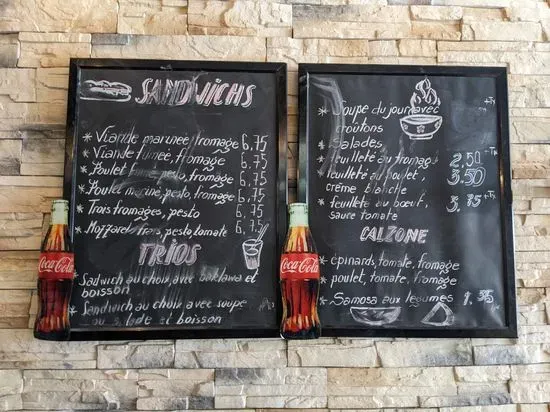 SANDWICHS
* Viande marinée, fromage 6,75
* Viande fumée, fromage 6,75
* Poulet fumé, pesto, fromage 6,75
* Poulet mariné, pesto, fromage 6,75
* Trois fromages, pesto 6,75
* Mozzarel trais, pesto, tomate 6,75
TRIOS
* Sadwich au choix, avec baklawa et
boisson
* Sandwich au choix avec soupe
ou salade et boisson
Coca-Cola
* Soupe du jour avec
croutons
* Salades
* feuilleté au fromage 2,50
* feuilleté au poulet, 3,50
crème blanche
* feuilleté au boeuf, 3,35
sauce tomate
CALZONE
* épinards, tomate, fromage
* poulet, tomate, fromage
* Samosa aux légumes 1,35
Coca-Cola